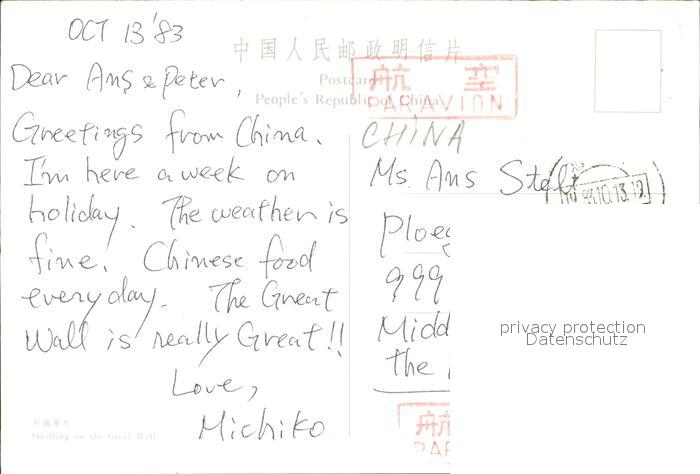 OCT 13 '83
中国人民邮政明信片
Postcard
People's Republic of China
航 空
PAR AVION
CHINA
Dear Ans & Peter,
Greetings from China.
I'm here a week on
holiday. The weather is
fine. Chinese food
everyday. The Great
Wall is really Great!!
Love,
Michiko
长城漫步
Strolling on the Great Wall
Ms. Ans
Ploeg
999
Midd
the
航
PAR
privacy protection
Datenschutz